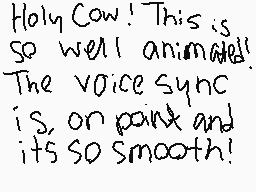 Holy Cow! This is
so well animated!
The voice sync
is, on point and
its so smooth!